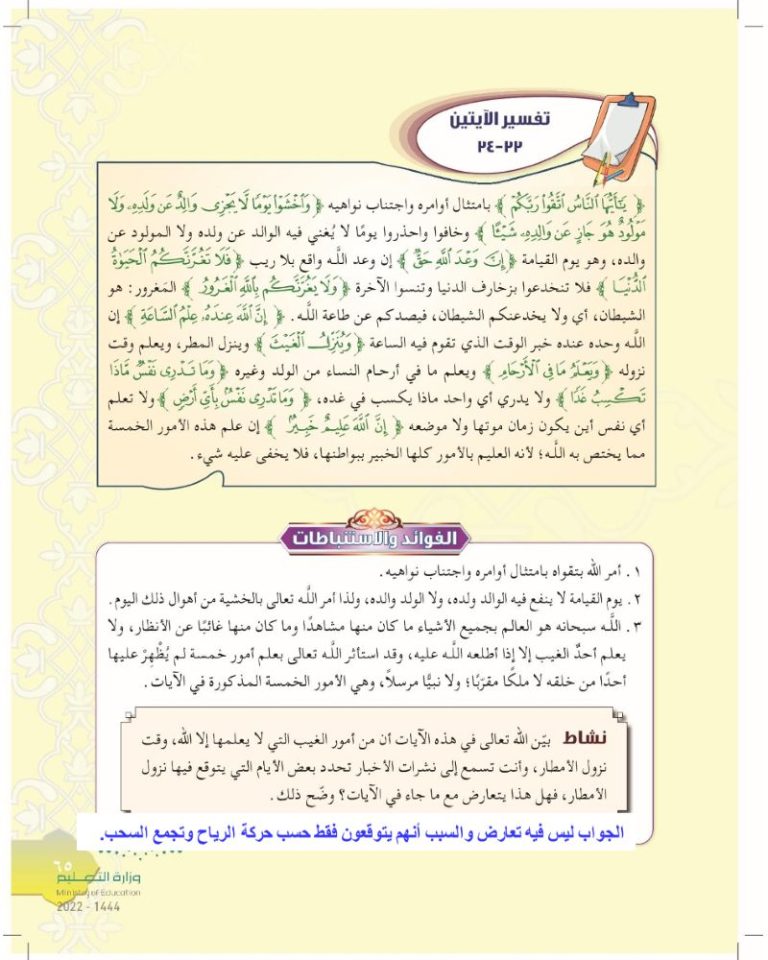 تفسير الآيتين
٢٢-٢٤
﴿ يَٰٓأَيُّهَا ٱلنَّاسُ ٱتَّقُوا۟ رَبَّكُمْ ﴾ بامتثال أوامره واجتناب نواهيه ﴿ وَٱخْشَوْا۟ يَوْمًا لَّا يَجْزِى وَالِدٌ عَن وَلَدِهِۦ وَلَا
مَوْلُودٌ هُوَ جَازٍ عَن وَالِدِهِۦ شَيْـًٔا ﴾ وخافوا واحذروا يومًا لا يُغني فيه الوالد عن ولده ولا المولود عن
والده، وهو يوم القيامة ﴿ إِنَّ وَعْدَ ٱللَّهِ حَقٌّ ﴾ إن وعد اللَّه واقع بلا ريب ﴿ فَلَا تَغُرَّنَّكُمُ ٱلْحَيَوٰةُ
ٱلدُّنْيَا ﴾ فلا تنخدعوا بزخارف الدنيا وتنسوا الآخرة ﴿ وَلَا يَغُرَّنَّكُم بِٱللَّهِ ٱلْغَرُورُ ﴾ المَغرور: هو
الشيطان، أي ولا يخدعنكم الشيطان، فيصدكم عن طاعة اللَّه. ﴿ إِنَّ ٱللَّهَ عِندَهُۥ عِلْمُ ٱلسَّاعَةِ ﴾ إن
اللَّه وحده عنده خبر الوقت الذي تقوم فيه الساعة ﴿ وَيُنَزِّلُ ٱلْغَيْثَ ﴾ وينزل المطر، ويعلم وقت
نزوله ﴿ وَيَعْلَمُ مَا فِى ٱلْأَرْحَامِ ﴾ ويعلم ما في أرحام النساء من الولد وغيره ﴿ وَمَا تَدْرِى نَفْسٌ مَّاذَا
تَكْسِبُ غَدًا ﴾ ولا يدري أي واحد ماذا يكسب في غده، ﴿ وَمَا تَدْرِى نَفْسٌۢ بِأَىِّ أَرْضٍ ﴾ ولا تعلم
أي نفس أين يكون زمان موتها ولا موضعه ﴿ إِنَّ ٱللَّهَ عَلِيمٌ خَبِيرٌ ﴾ إن علم هذه الأمور الخمسة
مما يختص به اللَّه؛ لأنه العليم بالأمور كلها الخبير ببواطنها، فلا يخفى عليه شيء.
الفوائد والاستنباطات
١. أمر الله بتقواه بامتثال أوامره واجتناب نواهيه.
٢. يوم القيامة لا ينفع فيه الوالد ولده، ولا الولد والده، ولذا أمر اللَّه تعالى بالخشية من أهوال ذلك اليوم.
٣. اللَّه سبحانه هو العالم بجميع الأشياء ما كان منها مشاهدًا وما كان منها غائبًا عن الأنظار، ولا
يعلم أحدٌ الغيب إلا إذا أطلعه اللَّه عليه، وقد استأثر اللَّه تعالى بعلم أمور خمسة لم يُظْهِرْ عليها
أحدًا من خلقه لا ملكًا مقرّبًا؛ ولا نبيًّا مرسلاً، وهي الأمور الخمسة المذكورة في الآيات.
نشاط بيّن الله تعالى في هذه الآيات أن من أمور الغيب التي لا يعلمها إلا الله، وقت
نزول الأمطار، وأنت تسمع إلى نشرات الأخبار تحدد بعض الأيام التي يتوقع فيها نزول
الأمطار، فهل هذا يتعارض مع ما جاء في الآيات؟ وضّح ذلك.
الجواب ليس فيه تعارض والسبب أنهم يتوقعون فقط حسب حركة الرياح وتجمع السحب.
٦٥
وزارة التعليم
Ministry of Education
2022 - 1444